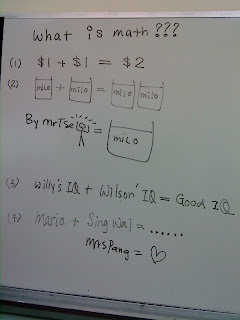 what is math???
(1) $1 + $1 = $2
(2) milo + milo = milo milo
By mrTse = milo
(3) Willy's IQ + Wilson' IQ = Good IQ
(4) Mario + Sing Wai = ......
mrs Pang = ♡